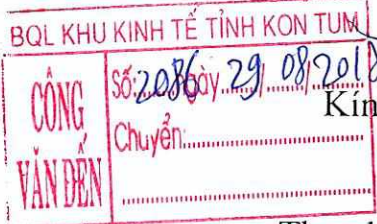 BQL KHU KINH TẾ TỈNH KON TUM
CÔNG VĂN ĐẾN
Số: 2086 Ngày 29/08/2018
Chuyển:
Kín